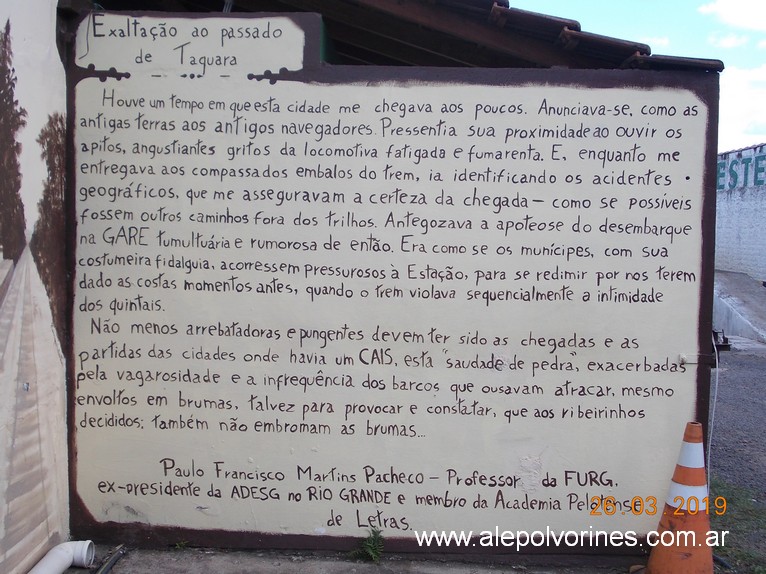 Exaltação ao passado
de Taquara
Houve um tempo em que esta cidade me chegava aos poucos. Anunciava-se, como as
antigas terras aos antigos navegadores. Pressentia sua proximidade ao ouvir os
apitos, angustiantes gritos da locomotiva fatigada e fumarenta. E, enquanto me
entregava aos compassados embalos do trem, ia identificando os acidentes
geográficos, que me asseguravam a certeza da chegada - como se possíveis
fossem outros caminhos fora dos trilhos. Antegozava a apoteose do desembarque
na GARE tumultuária e rumorosa de então. Era como se os munícipes, com sua
costumeira fidalguia, acorressem pressurosos à Estação, para se redimir por nos terem
dado as costas momentos antes, quando o trem violava sequencialmente a intimidade
dos quintais.
Não menos arrebatadoras e pungentes devem ter sido as chegadas e as
partidas das cidades onde havia um CAIS, esta "saudade de pedra", exacerbadas
pela vagarosidade e a infrequência dos barcos que ousavam atracar, mesmo
envoltos em brumas, talvez para provocar e constatar, que aos ribeirinhos
decididos; também não embromam as brumas...
Paulo Francisco Martins Pacheco - Professor da FURG.
ex-presidente da ADESG no RIO GRANDE e membro da Academia Pelotense
de Letras.
26.03.2019
www.alepolvorines.com.ar
ESTE